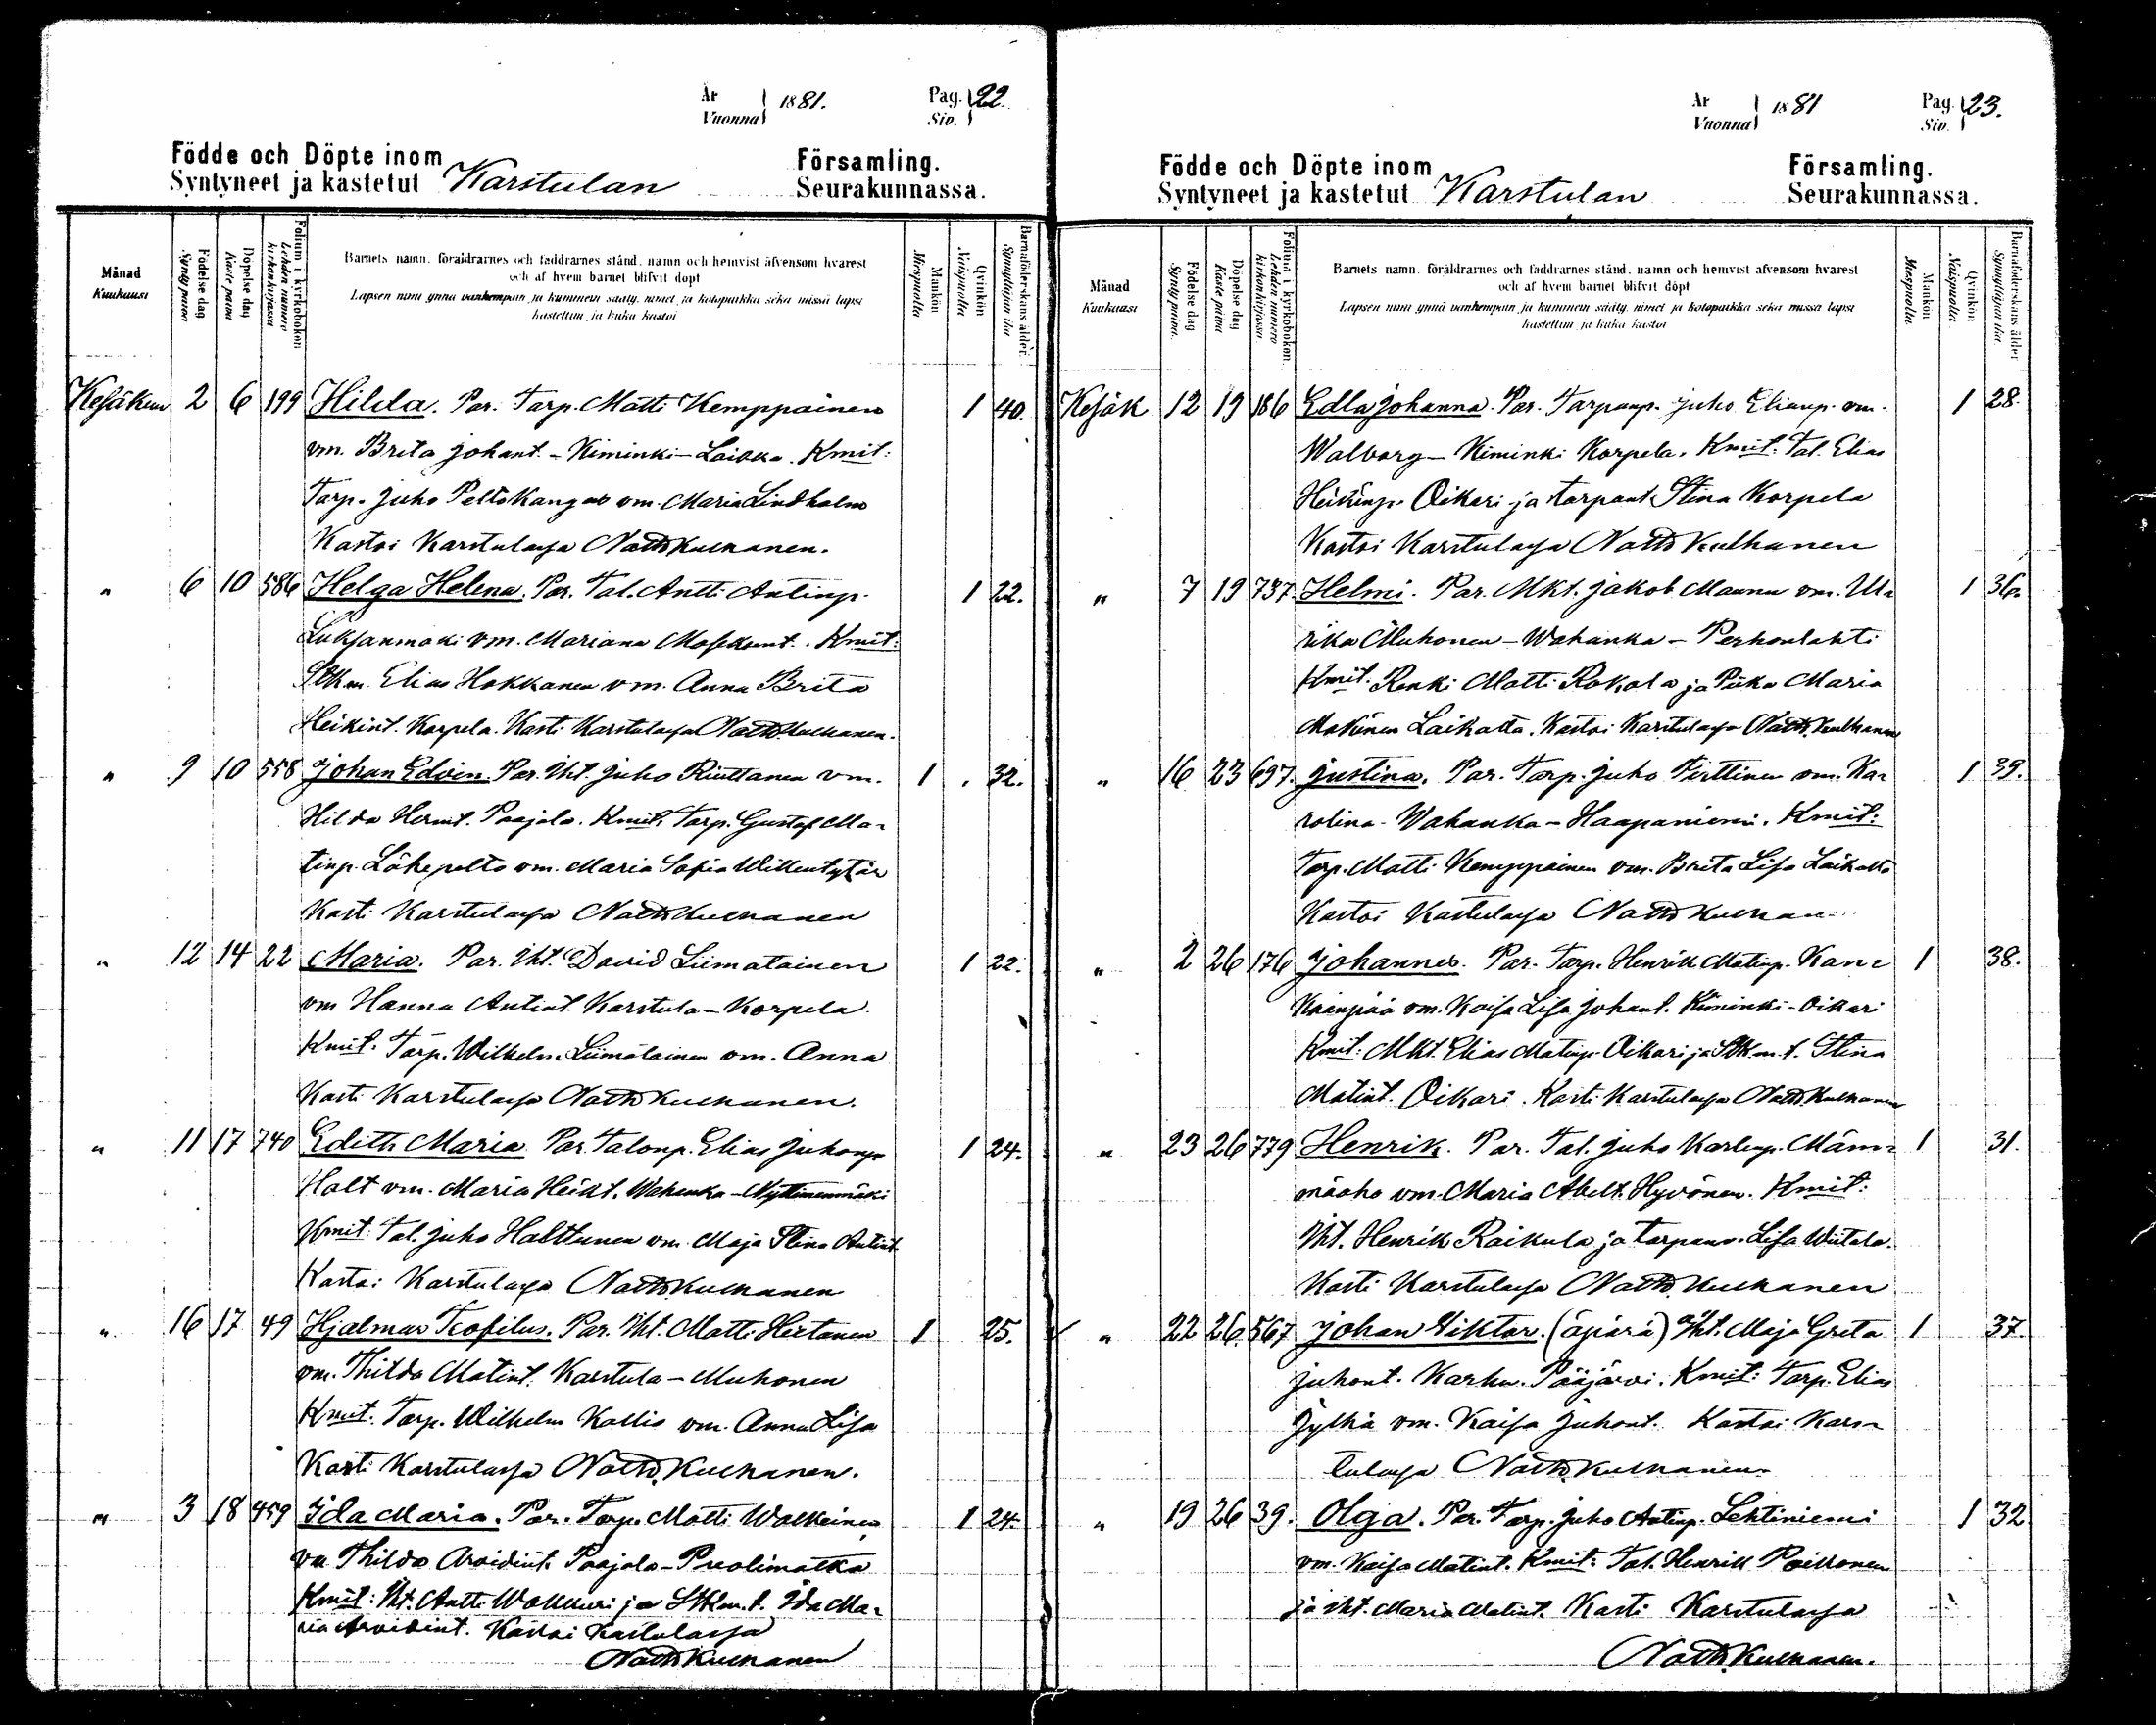 År Vuonna 1881. Pag. Siv. 22.
Födde och Döpte inom Församling.
Syntyneet ja kastetut Karstulan Seurakunnassa.
Månad Kuukausi
Födelse dag Synty päivä
Döpelse dag Kaste päivä
Folium i kyrkoboken Lehden numero kirkonkirjassa
Barnets namn, föräldrarnes och faddrarnes stånd, namn och hemvist äfvensom hvarest
och af hvem barnet blifvit döpt
Lapsen nimi ynnä vanhempain ja kummein sääty, nimet ja kotopaikka sekä missä lapsi
kastettiin ja kuka kastoi
Mankön Miespuolia
Qvinkön Naispuolia
Barnaföderskans ålder Synnyttäjän ikä
Kesäkuu 2 6 199 Hilda. Par. Torp. Matti Kemppainen 1 40.
vm. Brita Johant. - Kiminki - Laikka. Kmit:
Torp. Juho Peltokangas vm. Maria Lindholm
Kastoi Karstulassa Nath Kulhanen.
" 6 10 586 Helga Helena. Par. Tal. Antti Antinp. 1 22.
Luksanmäki vm. Mariana Moseksent. Kmit:
Itkm. Elias Hokkanen vm. Anna Brita
Heikint. Korpela. Kasti Karstulassa Nath Kulhanen.
" 9 10 558 Johan Edvin. Par. Iht. Juho Riuttanen vm. 1 32.
Hilda Hermt. Paajala. Kmit. Torp. Gustaf Ma=
tinp. Lähepelto vm. Maria Sofia Willentytär
Kasti Karstulassa Nath Kulhanen
" 12 14 22 Maria. Par. Iht. David Liimatainen 1 22.
vm Hanna Antint. Karstula - Korpela.
Kmit. Torp. Wilhelm Liimatainen vm. Anna
Kasti Karstulassa Nath Kulhanen.
" 11 17 740 Edith Maria. Par. Talonp. Elias Juhonp 1 24.
Halt vm. Maria Heikt. Wahanka - Nyttimenmäki
Kmit: Tal. Juho Halttunen vm. Maja Stina Antint.
Kastoi Karstulassa Nath Kulhanen
" 16 17 49 Hjalmar Teofilus. Par. Iht. Matti Hietanen 1 25.
vm. Thilda Matint. Karstula - Muhonen
Kmit. Torp. Wilhelm Kallio vm. Anna Lisa
Kasti Karstulassa Nath. Kulhanen.
" 3 18 459 Ida Maria. Par. Torp. Matti Walkeinen 1 24.
vm Thilda Arvidint. Paajala - Puolimatka
Kmit: Iht. Antti Wakkuri ja Itkm. t. Ida Ma=
ria Arvidint. Kastoi Kastulassa
Nath Kulhanen
År Vuonna 1881 Pag. Siv. 23.
Födde och Döpte inom Församling.
Syntyneet ja kastetut Karstulan Seurakunnassa.
Månad Kuukausi
Födelse dag Synty päivä
Döpelse dag Kaste päivä
Folium i kyrkoboken Lehden numero kirkonkirjassa
Barnets namn, föräldrarnes och faddrarnes stånd, namn och hemvist äfvensom hvarest
och af hvem barnet blifvit döpt
Lapsen nimi ynnä vanhempain ja kummein sääty, nimet ja kotopaikka sekä missä lapsi
kastettiin ja kuka kastoi
Mankön Miespuolia
Qvinkön Naispuolia
Barnaföderskans ålder Synnyttäjän ikä
Kesäk 12 19 186 Edla Johanna. Par. Torpanp. Juho Elianp. vm. 1 28.
Walborg - Kiminki Korpela. Kmit: Tal. Elias
Heikinp. Oikari ja torpant Stina Korpela
Kastoi Karstulassa Nath Kulhanen
" 7 19 737. Helmi. Par. Mkt. Jakob Mannu vm. Ul= 1 36.
rika Muhonen - Wahanka - Perhonlahti
Kmit. Renki Matti Rokala ja Piika Maria
Makinen Laikatta. Kastoi Karstulassa Nath. Kulhanen
" 16 23 697. Justina. Par. Torp. Juho Pirttinen vm. Ka= 1 39.
rolina - Wahanka - Haapaniemi. Kmit:
Torp. Matti Kemppainen vm. Brita Lisa Laikatta
Kastoi Kastulassa Nath Kulhan
" 2 26 176 Johannes. Par. Torp. Henrik Matinp. Kan= 1 38.
kaanpää vm. Kaisa Lisa Johant. Kiminki - Oikari
Kmit: Mkt. Elias Matinp. Oikari ja Itkm. t. Stina
Matint. Oikari. Kasti Karstulassa Nath Kulhanen
" 23 26 779 Henrik. Par. Tal. Juho Karlinp. Männ= 1 31.
mäaho vm. Maria Abelt. Hyvönen. Kmit:
Iht. Henrik Raikula ja torpanv. Lisa Wiitala.
Kasti Karstulassa Nath. Kulhanen
" 22 26. 567 Johan Viktor. (äpärä) Iht. Maja Greta 1 37.
Juhont. Karhu. Pääjärvi. Kmit: Torp. Elias
Jylhä vm. Kaisa Juhont. Kastoi Kars=
tulassa Nath. Kulhanen.
" 19 26 39. Olga. Par. Torp. Juho Antinp. Lehtiniemi 1 32
vm. Kaisa Matint. Kmit: Tal. Henrik Poikonen
ja Iht. Maria Matint. Kasti Karstulassa
Nath. Kulhanen.